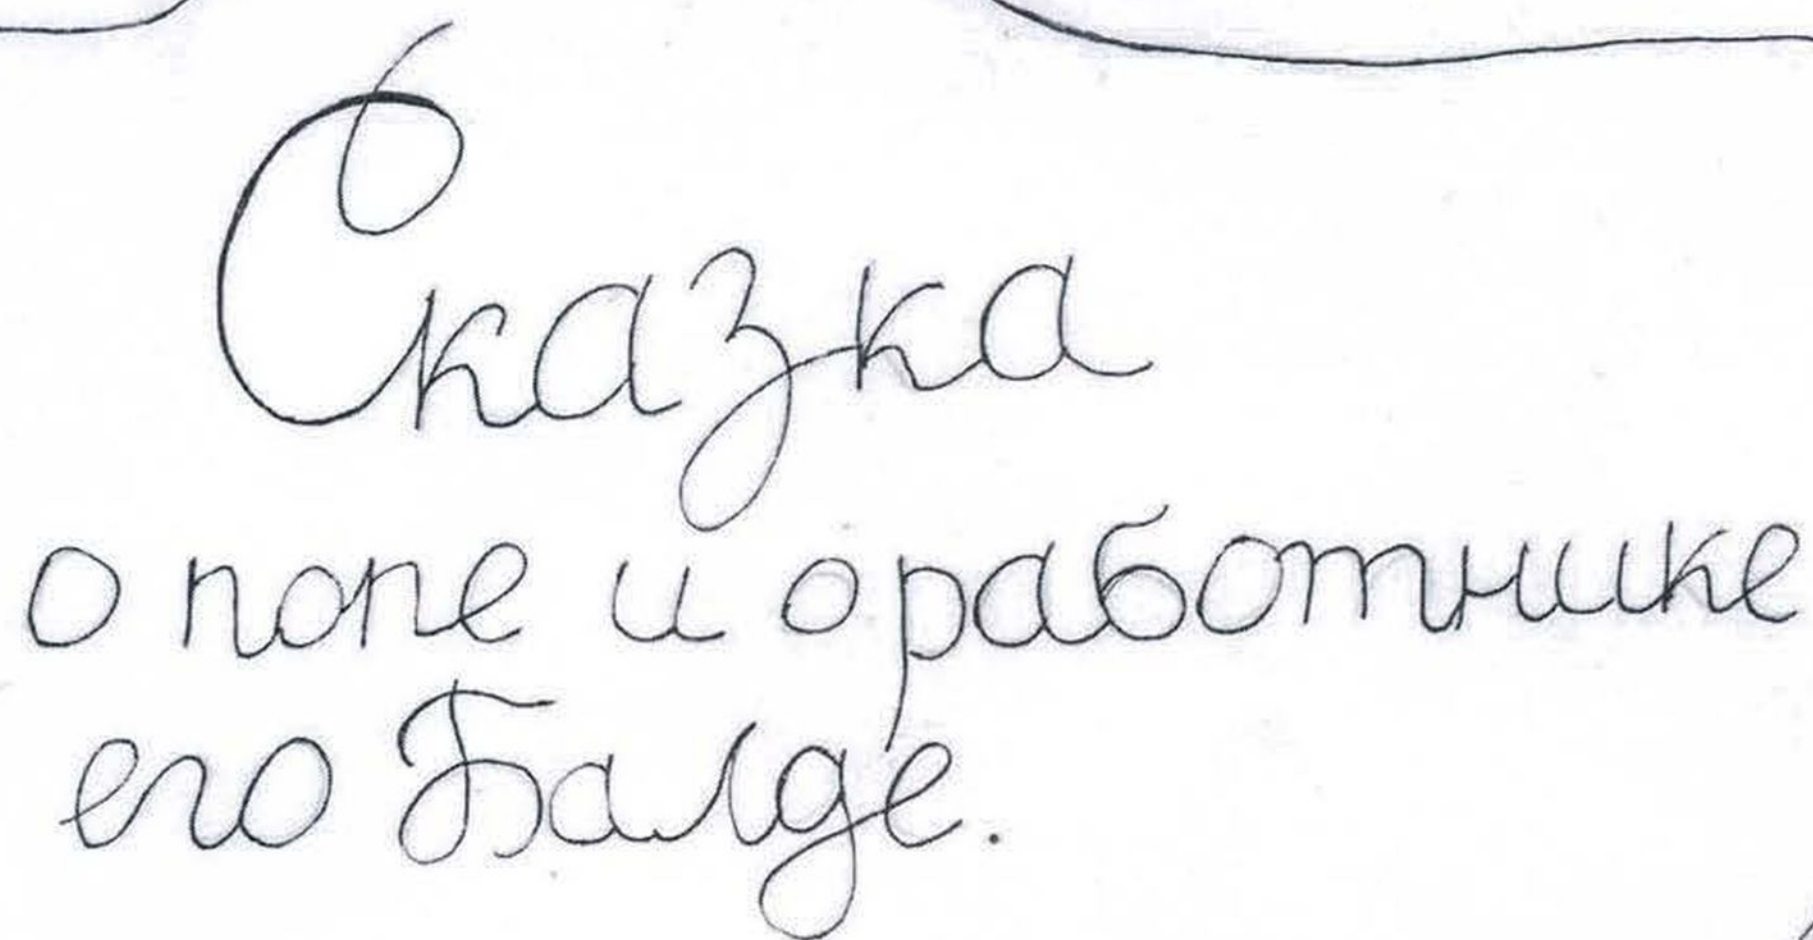 Сказка
о попе и о работнике
его Балде.